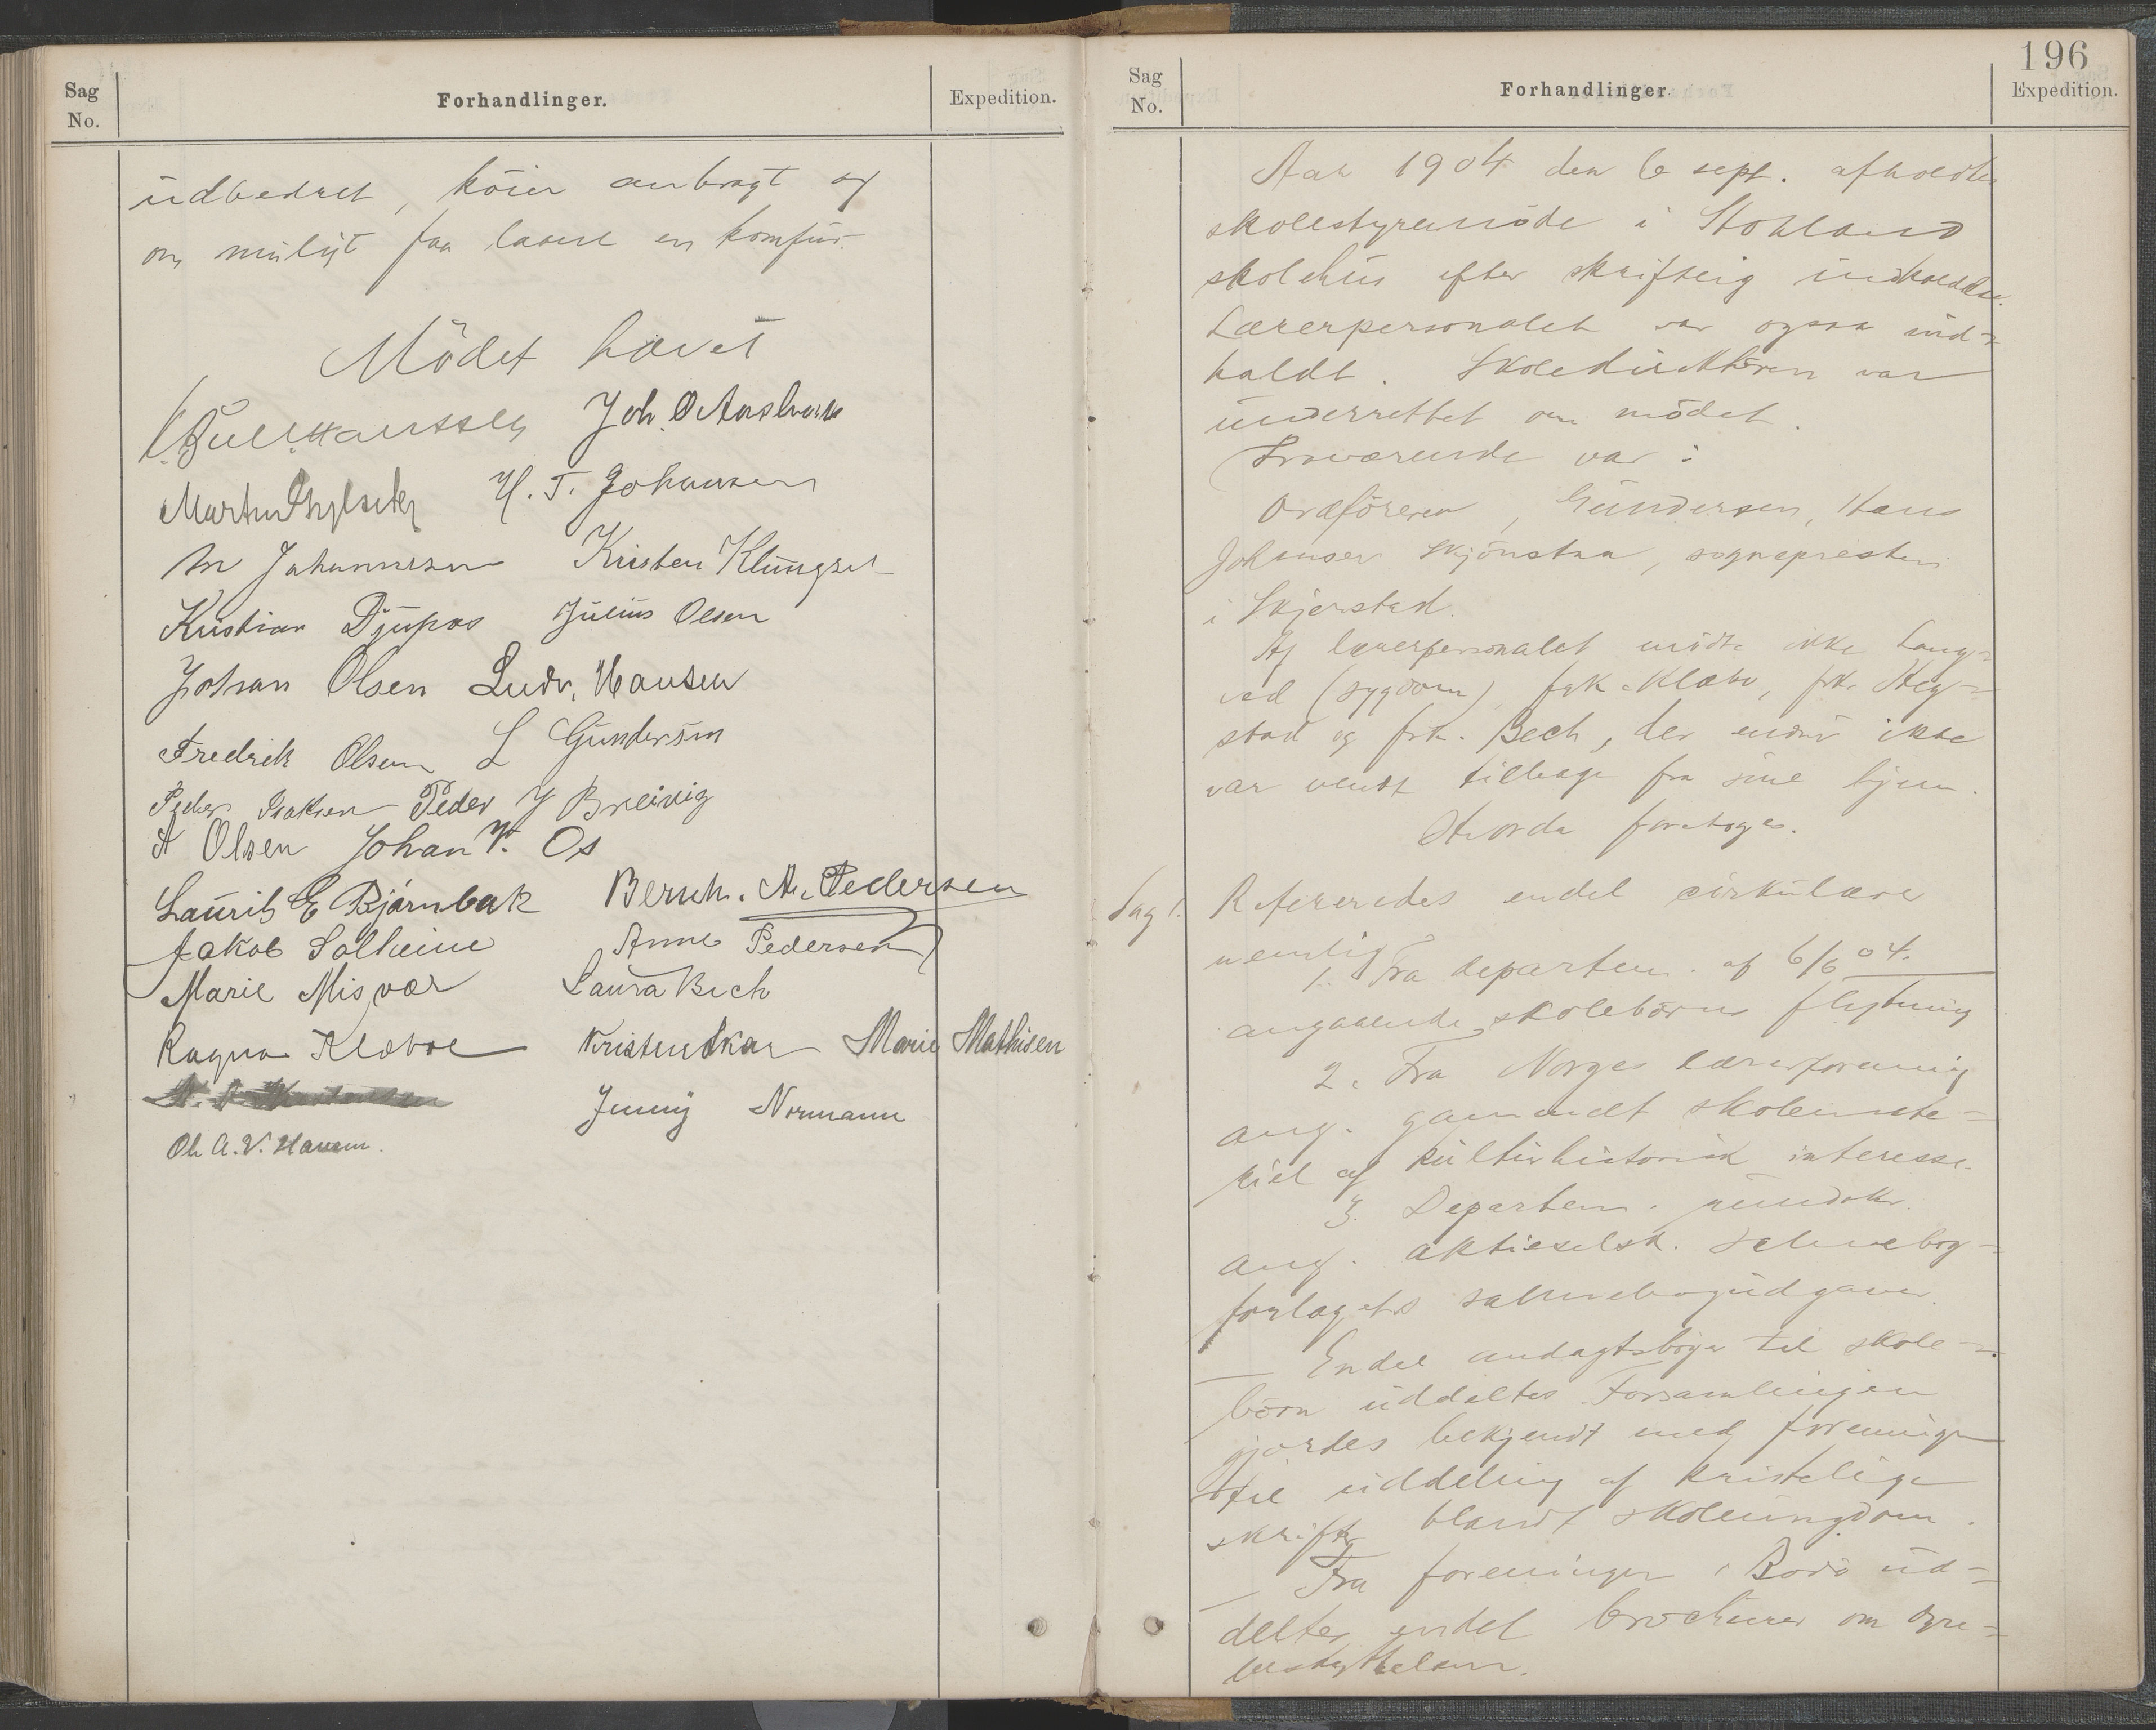 Sag No.
Forhandlinger.
Expedition.
udbedret, köier anbragt og
om muligt faa lavet en komfur.
Mödet hævet
Joh. O Aaslvœr
H. T. Johansen
M Johannessen Kristen Klungset
Kristian Djupos Julius Olsen
Johan Olsen Ludv. Hansen
Fredrik Olsen L Gundersen
Peder Isaksen Peder J Breivig
A Olsen Johan V. Os
Laurits E Bjørnbak Bernh. A. Pedersen
Jakob Solheim Anne Pedersen
Marie Misvær Laura Bech
Ragna Klæboe Kristen Skar Marie Mathisen
Jenny Normann
Ole A. V. Hansen.
196
Sag No.
Forhandlinger
Expedition.
Aar 1904 den 6 sept. afholdtes
skolestyremöde i Stokland
skolehus efter skriftlig indkaldelse.
Lærerpersonalet var ogsaa ind-
kaldt. Skoledirektören var
underrettet om mödet.
Fraværende var:
Ordföreren, Gundersen, Hans
Johansen Skjönstaa, sognepresten
i Skjerstad.
Af lærerpersonalet mödte ikke Lang-
ved (sygdom), frk. Klæbo, frk. Steg-
stad og frk. Bech, der endnu ikke
var vendt tilbage fra sine hjem.
Hvorda foretoges.
Sag 1. Refereredes endel cirkulære
nemlig
1. Fra departem. af 6/6 04.
angaaende skolebörns flytning
2. Fra Norges lærerforening
ang. gammelt skolemate-
riel af kulturhistorisk interesse.
3. Departem. rundskr.
ang. aktieselsk. salmebog-
forlagets salmebogudgaver.
Endel andagtsböger til skole-
börn uddeltes. Forsamlingen
gjordes bekjendt med foreningen
til uddeling af kristelige
skrifter blandt skoleungdom.
Fra foreningen i Bodö ud-
deltes endel brochurer om dyre-
beskyttelsen.